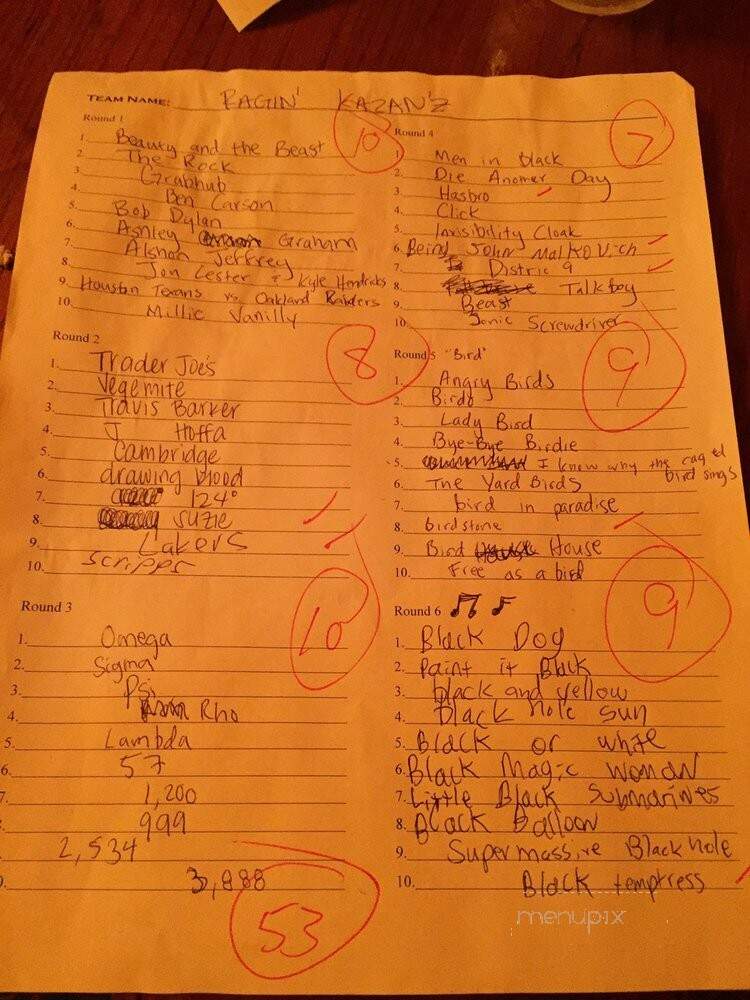 TEAM NAME: RAGIN' KAZAN'Z
Round 1
10
1. Beauty and the Beast
2. The Rock
3. Grabhub
4. Ben Carson
5. Bob Dylan
6. Ashley Graham
7. Alshon Jeffrey
8. Jon Lester & Kyle Hendricks
9. Houston Texans vs. Oakland Raiders
10. Millie Vanilly
Round 2
8
1. Trader Joe's
2. Vegemite
3. Travis Barker
4. J Hoffa
5. Cambridge
6. drawing blood
7. 124°
8. Suzie
9. Lakers
10. Scripps
Round 3
10
1. Omega
2. Sigma
3. Psi
4. Rho
5. Lambda
6. 57
7. 1,200
999
2,534
3,888
53
Round 4
7
1. Men in Black
2. Die Another Day
3. Hasbro
4. Click
5. Invisibility Cloak
6. Being John Malkovich
7. Distric 9
8. Talkboy
9. Beast
10. Sonic Screwdriver
Round 5 "Bird"
9
1. Angry Birds
2. Birdo
3. Lady Bird
4. Bye-Bye Birdie
5. I know why the caged bird sings
6. The Yard Birds
7. bird in paradise
8. birdstone
9. Bird House
10. Free as a bird
Round 6
9
1. Black Dog
2. Paint it Black
3. black and yellow
4. black hole sun
5. Black or white
6. Black Magic woman
7. Little Black Submarines
8. Black Balloon
9. Supermassive Black hole
10. Black temptress
menupix